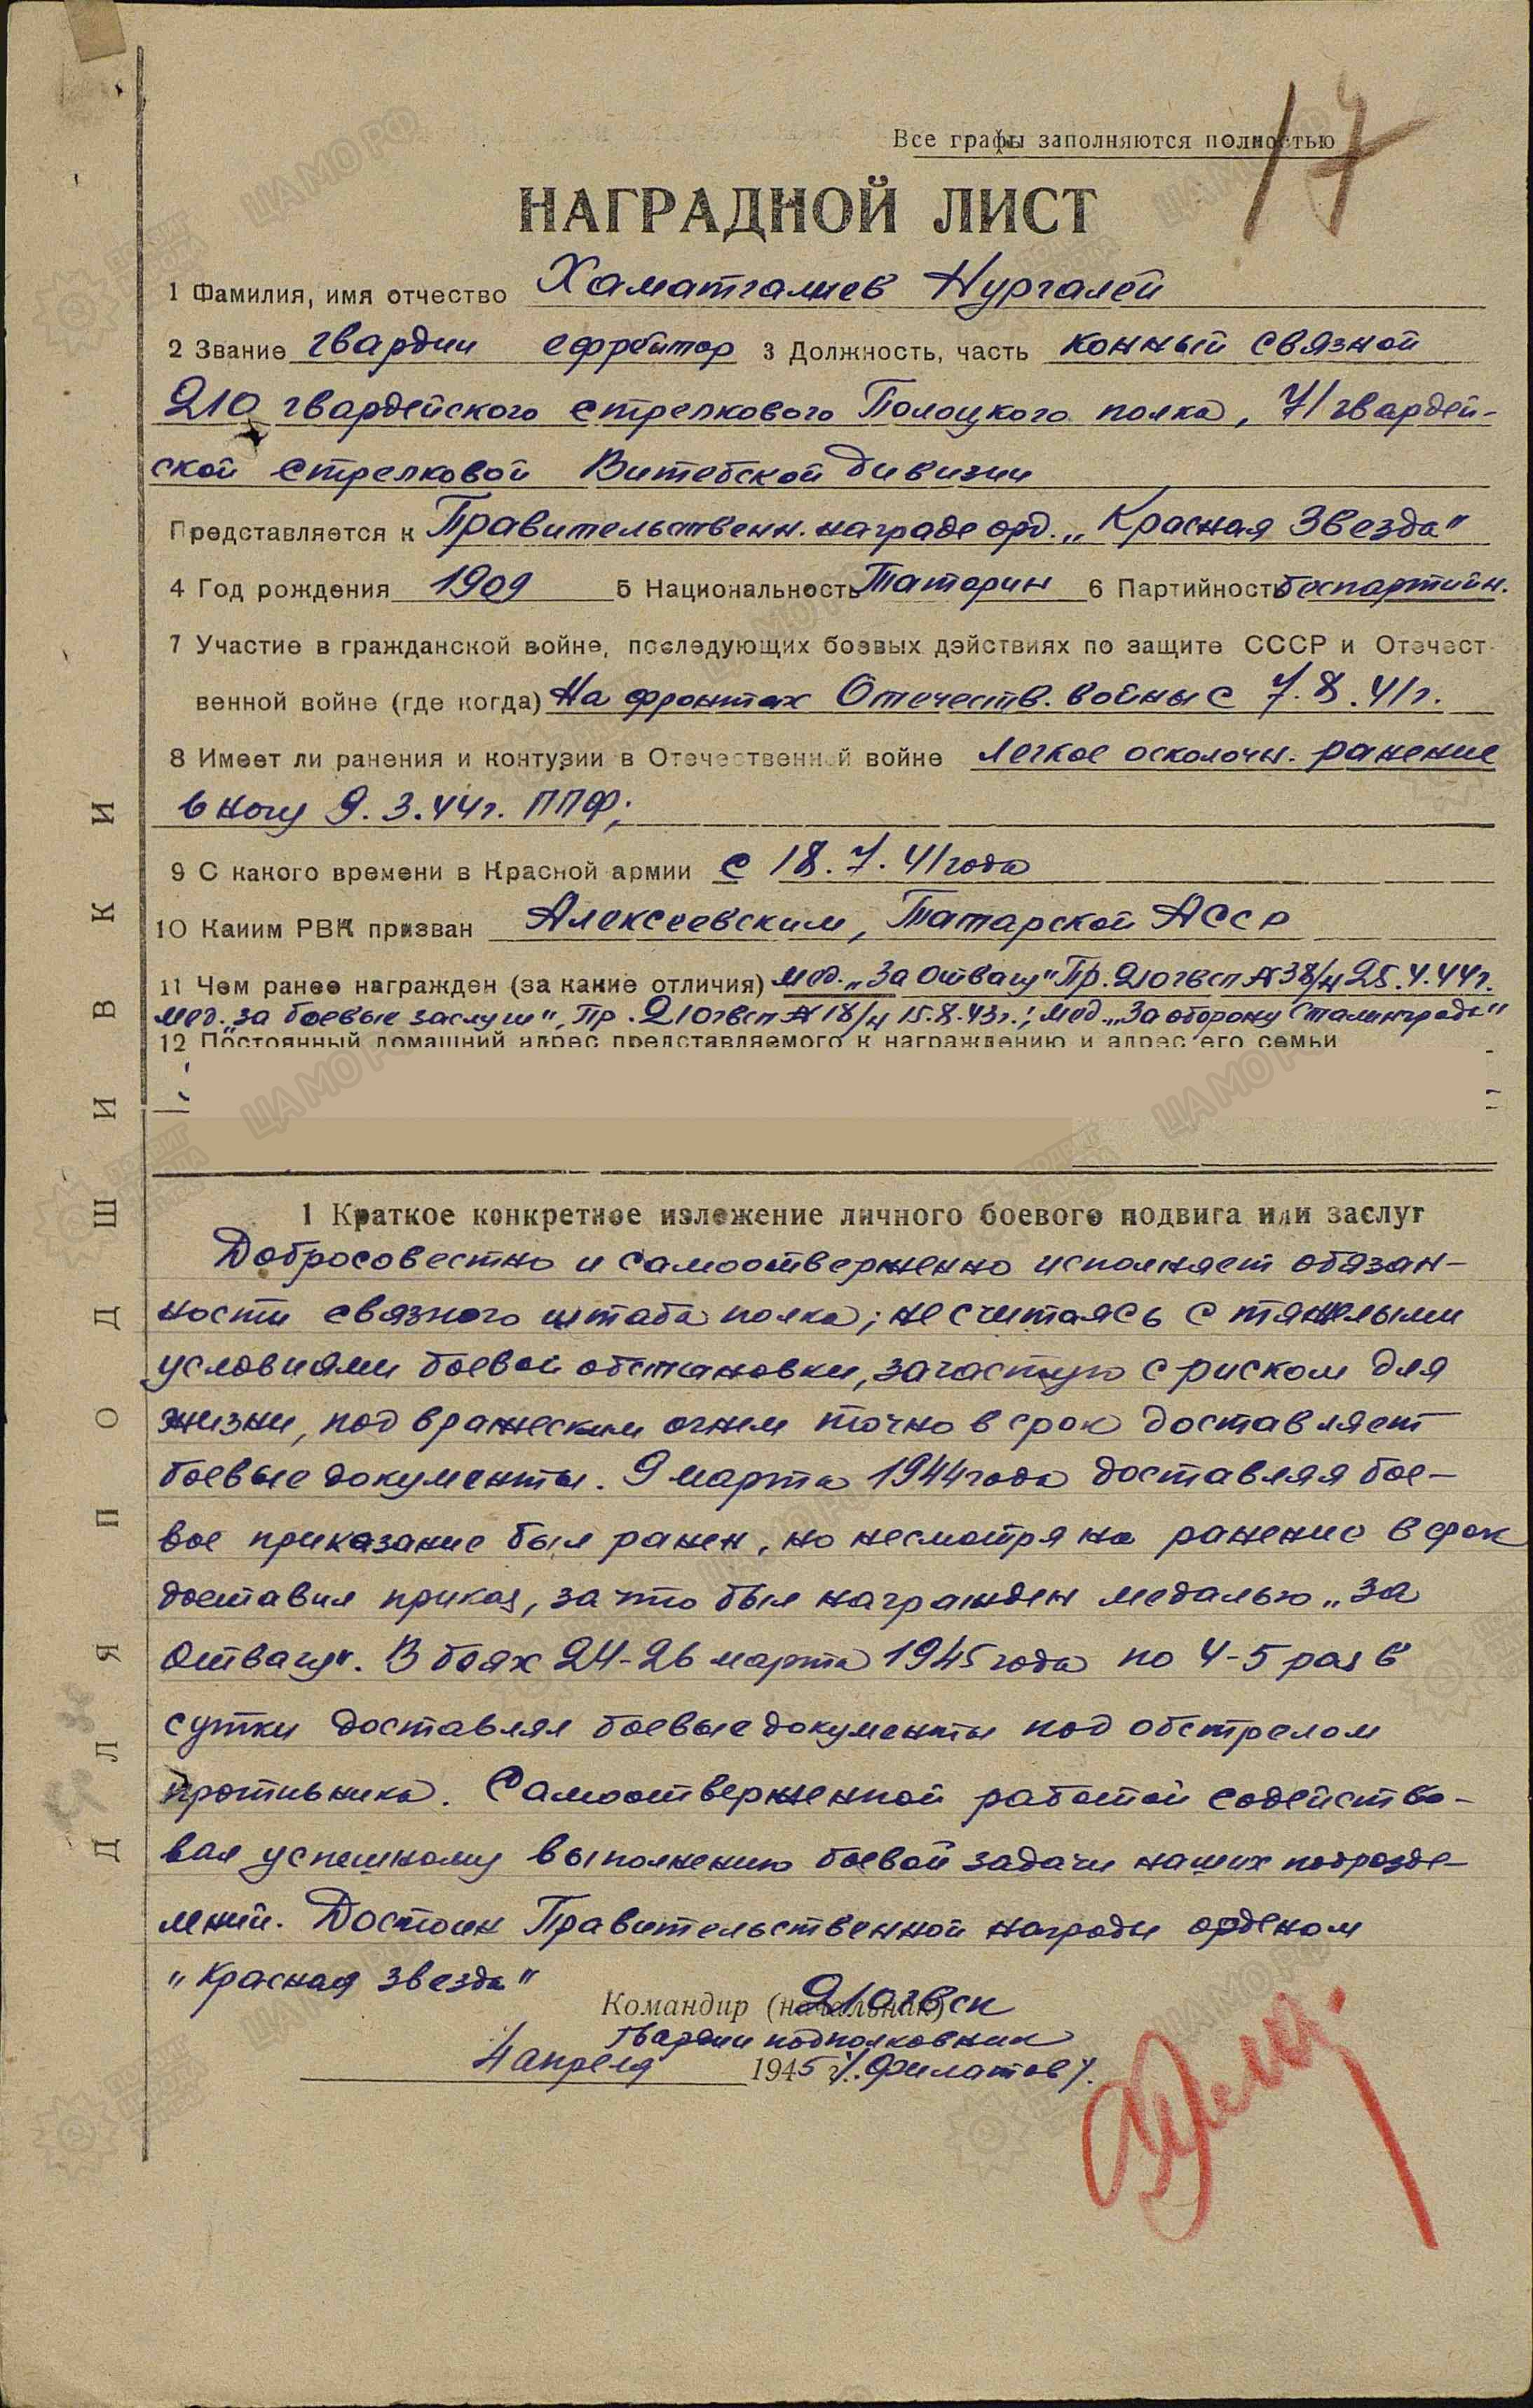 17
Все графы заполняются полностью
НАГРАДНОЙ ЛИСТ
1 Фамилия, имя отчество Хаматгалиев Нургалей
2 Звание гвардии ефрейтор 3 Должность, часть конный связной
210 гвардейского стрелкового Полоцкого полка, 71 гвардей-
ской стрелковой Витебской дивизии
Представляется к Правительственн. награде орд. „Красная Звезда"
4 Год рождения 1909 5 Национальность Татарин 6 Партийность беспартийн.
7 Участие в гражданской войне, последующих боевых действиях по защите СССР и Отечест-
венной войне (где когда) На фронтах Отечеств. войны с 7.8.41г.
8 Имеет ли ранения и контузии в Отечественной войне легкое осколочн. ранение
в ногу 9.3.44г. ППФ;
9 С какого времени в Красной армии с 18.7.41 года
10 Каким РВК призван Алексеевским, Татарской АССР
11 Чем ранее награжден (за какие отличия) мед. „За Отвагу" Пр. 210 гвсп № 38/н 25.4.44г.
мед. „за боевые заслуги", Пр. 210 гвсп № 18/н 15.8.43г.; мед. „За оборону Сталинграда"
12 Постоянный домашний адрес представляемого к награждению и адрес его семьи
1 Краткое конкретное изложение личного боевого подвига или заслуг
Добросовестно и самоотверженно исполняет обязан-
ности связного штаба полка; не считаясь с тяжелыми
условиями боевой обстановки, зачастую с риском для
жизни, под вражеским огнем точно в срок доставляет
боевые документы. 9 марта 1944 года доставляя бое-
вое приказание был ранен, но несмотря на ранение в срок
доставил приказ, за что был награжден медалью „За
Отвагу". В боях 24-26 марта 1945 года по 4-5 раз в
сутки доставлял боевые документы под обстрелом
противника. Самоотверженной работой содейство-
вал успешному выполнению боевой задачи наших подразде-
лений. Достоин Правительственной награды орденом
„Красная Звезда"
Командир (начальник) 210 гвсп
гвардии подполковник
4 апреля 1945 г. /Филатов/.
ДЛЯ ПОДШИВКИ